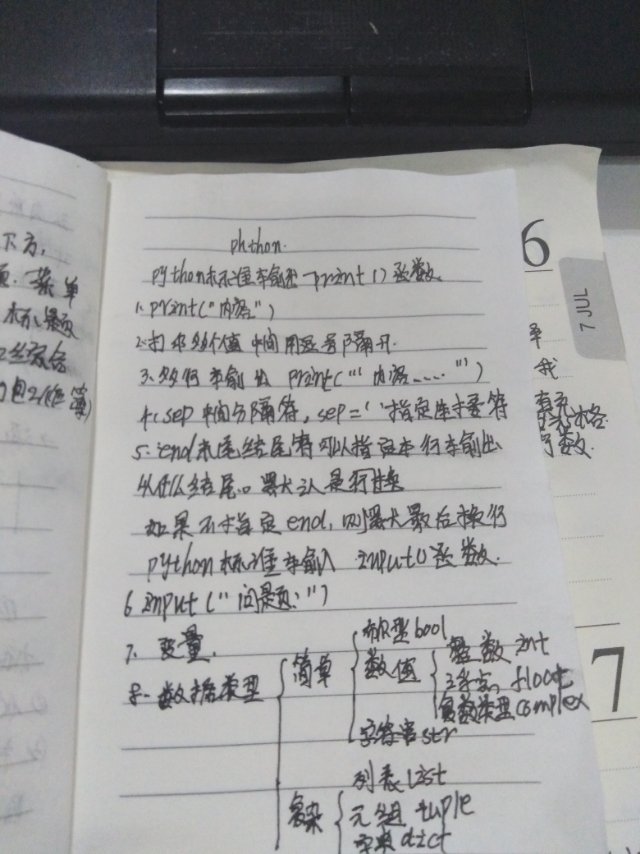 下方,
菜单
标题
phthon.
python标准输出—print()函数.
1. print("内容")
2. 打印多个值 中间用逗号隔开.
3. 多行输出 print("''内容....''")
4. sep 中间分隔符, sep=' '指定连接符
5. end末尾结尾符 可以指定本行输出
以什么结尾。默认是行替换
如果不指定end,则默认最后换行
python标准输入 input()函数.
6 input("问题:")
7. 变量.
8. 数据类型
简单
布尔型 bool
数值
整数 int
浮点 float
复数类型 complex
字符串 str
复杂
列表 list
元组 tuple
字典 dict
6
7 JUL
我
格
数.
7